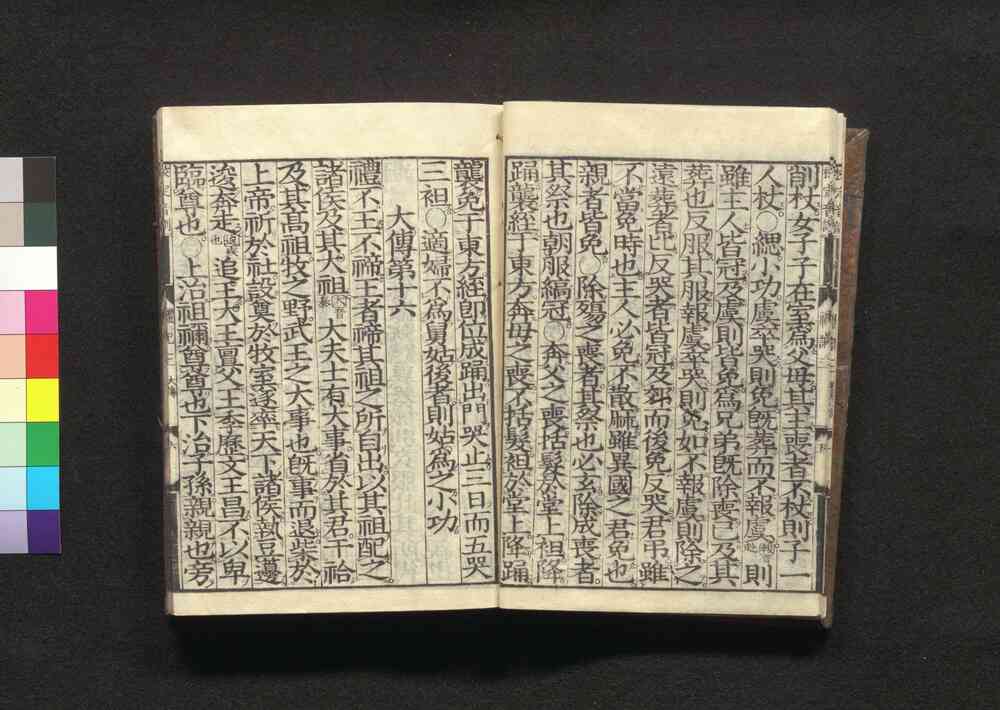 削杖女子子在室爲父母其主喪者不杖則子一
人杖○緦小功虞卒哭則免旣葬而不報虞則
雖主人皆冠及虞則皆免爲兄弟旣除喪已及其
葬也反服其服報虞卒哭則免如不報虞則除之
遠葬者比反哭者皆冠及郊而後免反哭君吊雖
不當免時也主人必免不散麻雖異國之君免也
親者皆免○除殤之喪者其祭也必玄除成喪者
其祭也朝服縞冠○奔父之喪括髮於堂上袒降
踊襲絰于東方奔母之喪不括髮袒於堂上降踊
襲免于東方絰即位成踊出門哭止三日而五哭
三袒○適婦不爲舅姑後者則姑爲之小功
大傳第十六
禮不王不禘王者禘其祖之所自出以其祖配之
諸侯及其大祖大夫士有大事省於其君干祫
及其高祖牧之野武王之大事也旣事而退柴於
上帝祈於社設奠於牧室遂率天下諸侯執豆籩
逡奔走追王大王亶父王季歷文王昌不以卑
臨尊也○上治祖禰尊尊也下治子孫親親也旁